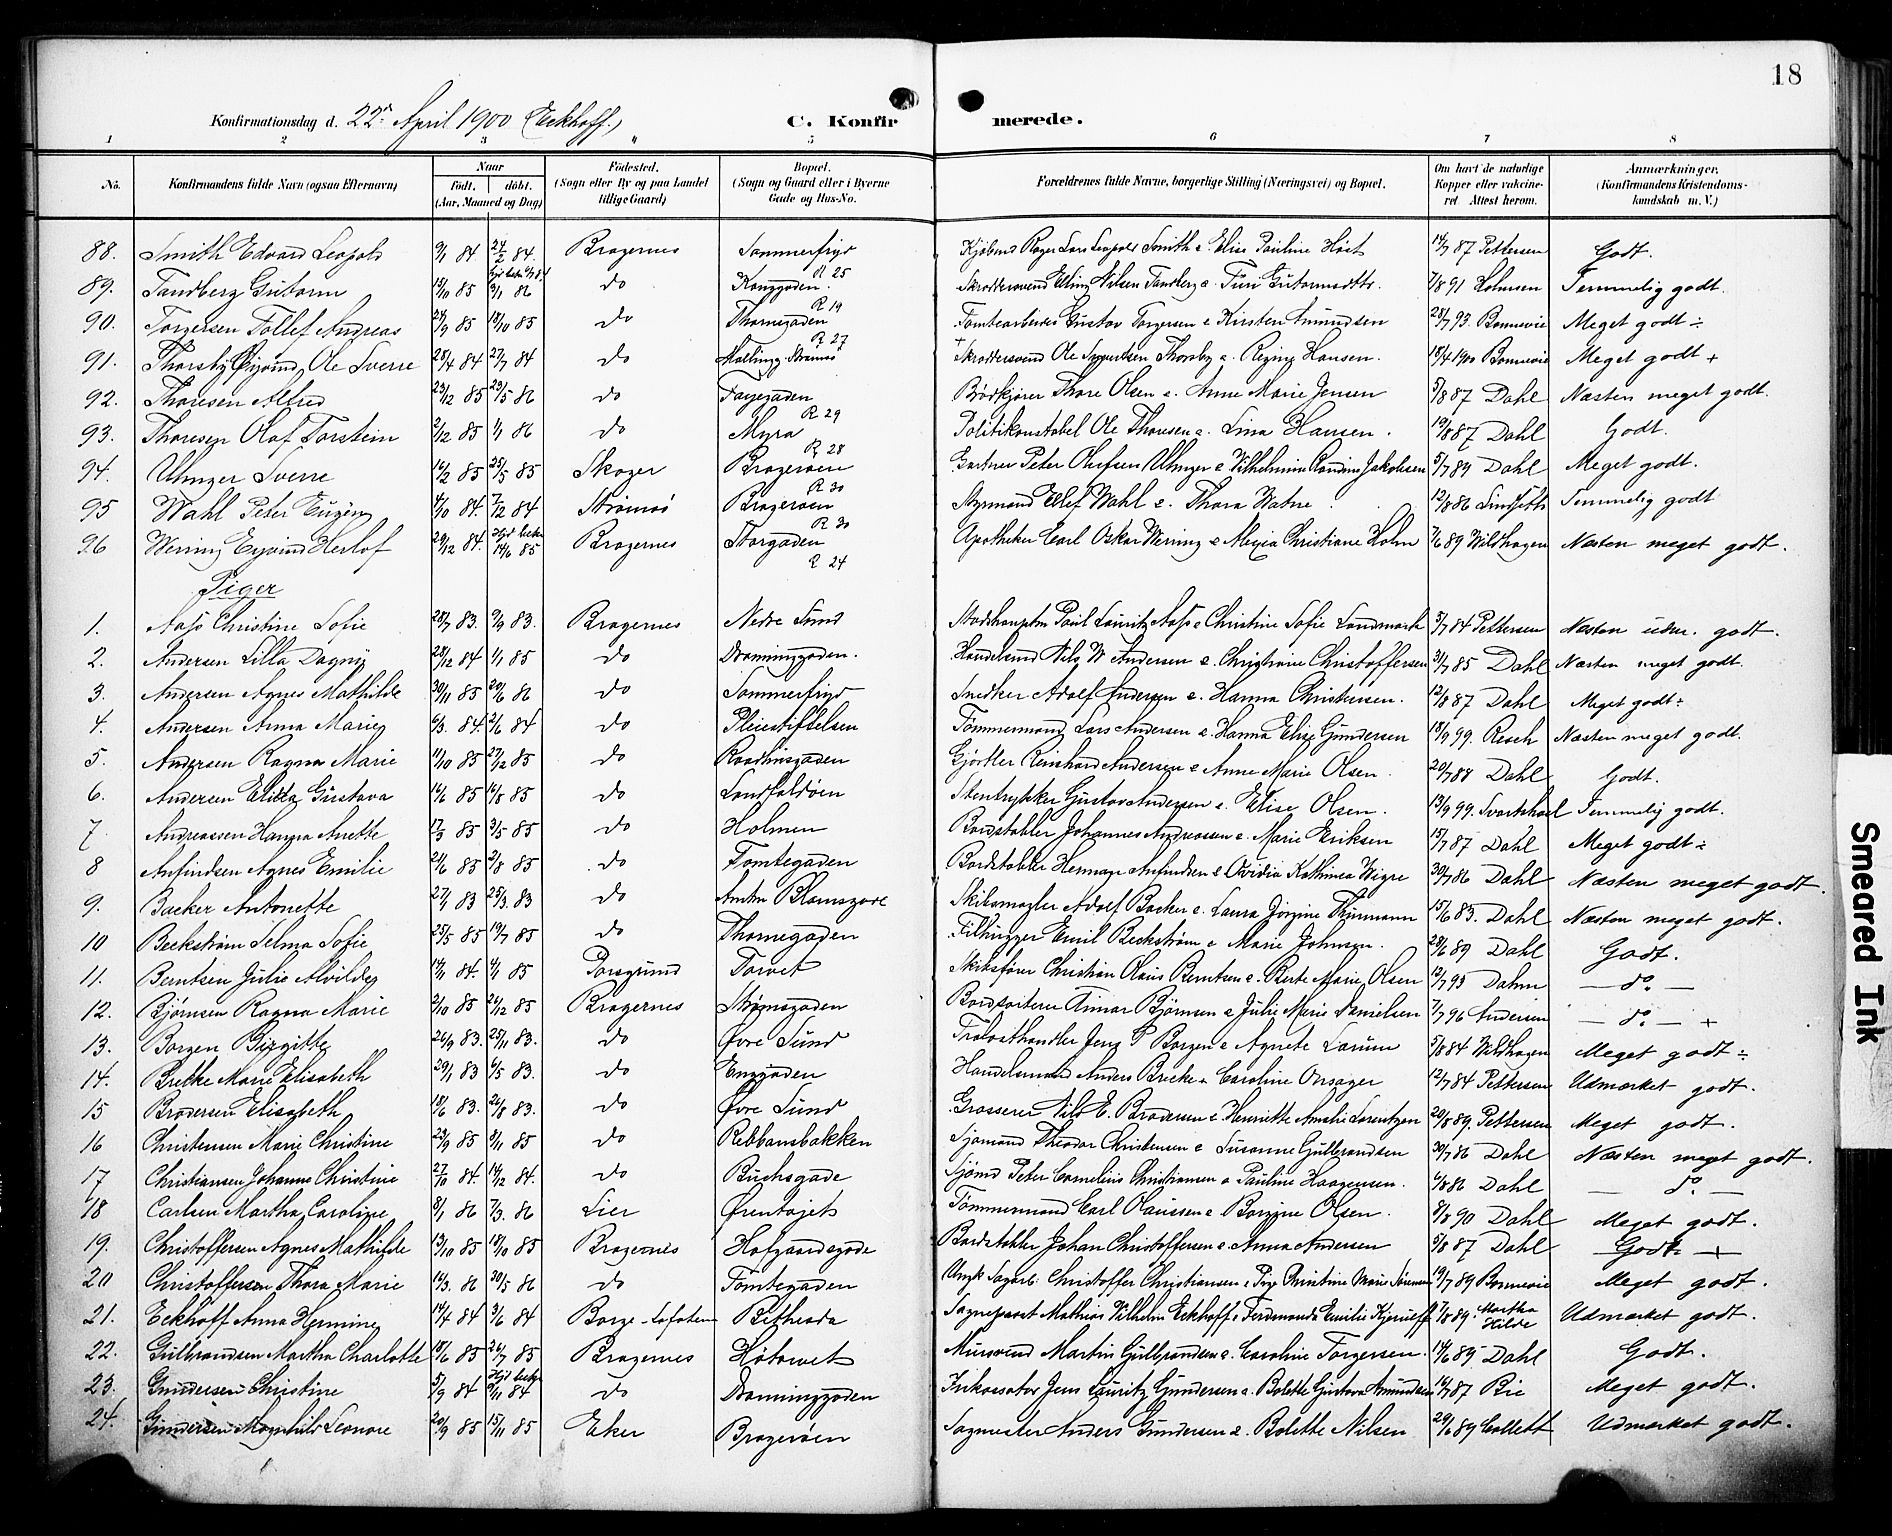 18
Konfirmationsdag d. 22n April 1900 (Eckhoff.) C. Konfirmerede.
1 2 3 4 5 6 7 8
No. Konfirmandens fulde Navn (ogsaa Efternavn) Naar født. døbt. (Aar, Maaned og Dag) Fødested. (Sogn eller By og paa Landet tillige Gaard) Bopæl. (Sogn og Gaard eller i Byerne Gade og Hus-No. Forældrenes fulde Navne, borgerlige Stilling (Næringsvei) og Bopæl. Om havt de naturlige Kopper eller vakcineret Attest herom. Anmærkninger. (Konfirmandens Kristendomskundskab m. V.)
88. Smith Edvard Leopold 9/1 84 24/2 84. Bragernes Sommerfryd R 25 Kjøbmd Roger Lars Leopold Smith & Elise Pauline Høst 14/7 87 Pettersen Godt.
89. Tandberg Guttorm 13/10 85 3/1 86 do Konggaden. R 19 Skræddersvend Elling Nilsen Tandberg & Turi Guttormsdtr. 7/8 91 Holmsen Temmelig godt
90. Torgersen Tollef Andreas 24/9 85 18/10 85 do Thornegaden R 27 Tomtearbeider Gustav Torgersen & Kirsten Amundsen 28/7 93. Bonnevie Meget godt ÷
91. Thorsby Øyvind Ole Sverre 28/4 84 27/7 84 do Skræddersvend Ole Syvertsen Thorsby & Regine Hansen. 18/4 1900 Bonnevie Meget godt +
92. Thoresen Alfred 23/12 85 23/5 86 do Farvegaden R 29 Brødkjører Thore Olsen & Anne Marie Jensen 5/8 87 Dahl Næsten meget godt.
93. Thoresen Olaf Torstein 2/12 85 1/1 86 do Myra R 28 Politikonstabel Ole Thoresen & Lina Hansen. 19/8 87 Dahl Godt.
94. Sverre 16/2 85 25/5 85 Skoger Bragerøen R 30 Gartner Peter Olufsen & Vilhelmine Randine Jakobsen 5/7 89 Dahl Meget godt.
95 Wahl Peter Eugen 4/10 84. 7/12 84 Strømsø Bragerøen R 30 Styrmand Ellef Wahl & Thora Watne 12/8 86 Lindseth Temmelig godt
96 Wering Eyvind Herlof 29/12 84. 14/6 85 Bragernes Storgaden R 24 Apotheker Carl Oskar Wering & Alexia Christiane Holm 7/6 89 Wildhagen Næsten meget godt.
Piger
1. Aass Christine Sofie 28/7 83. 9/9 83. Bragernes Nedre Sund Stadshauptm Poul Lauritz Aass & Christine Sofie Landmark 3/7 84 Pettersen Næsten udm. godt.
2. Andersen Lilla Dagny 28/12 84 1/1 85 do Dronninggaden. Handelsmd Nils W Andersen & Christiane Christoffersen 31/7 85 Dahl Næsten meget godt.
3. Andersen Agnes Mathilde 30/11 85 20/6 86 do Sommerfryd Snedker Adolf Andersen & Hanna Christensen. 12/8 87 Dahl Meget godt ÷
4. Andersen Anna Marie 6/3. 84. 2/6 84 do Pleiestiftelsen Tømmermand Lars Andersen & Hanna Elise Gundersen 18/9 99. Resch Næsten meget godt.
5. Andersen Ragna Marie 11/10 85 27/12 85 do Raadhusgaden Gjørtler Reinhard Andersen & Anne Marie Olsen. 20/7 88 Dahl Godt.
6. Andersen Elida Gustava 14/6 85 16/8 85 do Landfaldøen Stentrykker Gustav Andersen & Elise Olsen. 13/9 99. Svartshoel Temmelig godt.
7 Andreassen Hanna Anette 17/3 85 3/5 85 do Holmen Bordstabler Johannes Andreassen & Marie Eriksen 15/7 87 Dahl Meget godt ÷
8 Anfindsen Agnes Emilie 21/6 85 2/8 85 do Tomtegaden Bordstabler Anfindsen & Ovidia Kathinca Wigre 30/7 86 Dahl Næsten meget godt.
9. Backer Antonette 27/1 83 25/3. 83 do Amtm Bloms gave Skibsmægler Adolf Backer & Laura Jørgine Thurmann 15/6 83. Dahl Næsten meget godt.
10 Beckstrøm Selma Sofie 25/5 85 19/7 85 do Thornegaden Filhugger Emil Beckstrøm & Marie Johnsen. 28/6 89 Dahl Godt.
11. Berntsen Julie Alvilde 14/11 84. 4/1 85 Porsgrund Torvet Skibsfører Christian Olaus Berntsen & Berte Marie Olsen 12/7 93 Dahm — do. —
12. Bjørnsen Ragna Marie 2/10 85 26/12 85 Bragernes Strømsgaden Bordsorterer Einar Bjørnsen & Julie Marie Danielsen 7/7 96 Andersen — do. — +
13. Borgen Birgitte 26/9 83. 25/11 83. do Øvre Sund Trælasthandler Jens P Borgen & Agnete Larum 5/8 84 Wildhagen Meget godt ÷
14. Brekke Marie Elisabeth 29/1 83 6/5 83. do Enggaden Handelsmand Anders Brekke & Caroline Onsager 12/7 84 Pettersen Udmærket godt.
15 Brodersen Elisabeth 18/6 83. 26/8 83. do Øvre Sund Grosserer Nils E. Brodersen & Henriette Amalie Lorentzen 20/8 89. Pettersen Meget godt.
16 Christensen Marie Christine 23/9 85 8/11 85 do Rebbansbakken Sjømand Theodor Christensen & Susanne Gulbrandsen 30/7 86 Dahl Næsten meget godt.
17 Christiansen Johanne Christine 27/10 84. 14/12 84. do Buchsgade Sjømd Peter Cornelius Christiansen & Pauline Haagensen. 6/8 86 Dahl — do. —
18 Carlsen Martha Caroline 8/1 86 7/3. 86 Lier Ørentøjet Tømmermand Carl Olaussen & Borgine Olsen. 8/8 90 Dahl Meget godt.
19. Christoffersen Agnes Mathilde 13/10 85 18/10 85 Bragernes Hofgaardsgade Bordstabler Johan Christoffersen & Anna Andersen 5/8 87 Dahl Godt +
20 Christoffersen Thora Marie 14/3. 86 20/5 86 do Tomtegaden Ungk Sagarb: Christoffer Christiansen & Pige Christine Marie Sørensen 19/7 89 Bonnevie Meget godt.
21. Eckhoff Anna Hermine 14/4 84 3/6 84 Borge-Lofoten Bethesda Sogneprest Mathias Vilhelm Eckhoff & Ferdinanda Emilie Kjerulff 7/8 89. Martha Hilde Udmærket godt.
22. Gulbrandsen Martha Charlotte 18/6 85 26/7 85 Bragernes Høtorvet Mursvend Martin Gulbrandsen & Caroline Torgersen. 14/6 89. Dahl Godt.
23. Gundersen Christine 5/9 84 9/11 84 do Dronninggaden Inkassator Jens Lauritz Gundersen & Bolette Gustava Amundsen 14/7 87 Bie Meget godt.
24. Gundersen Magnhild Leonore 20/9 85 15/11 85 Eker Bragerøen Sagmester Anders Gundersen & Bolette Nilsen 29/6 89 Collett Udmærket godt.
Smeared Ink